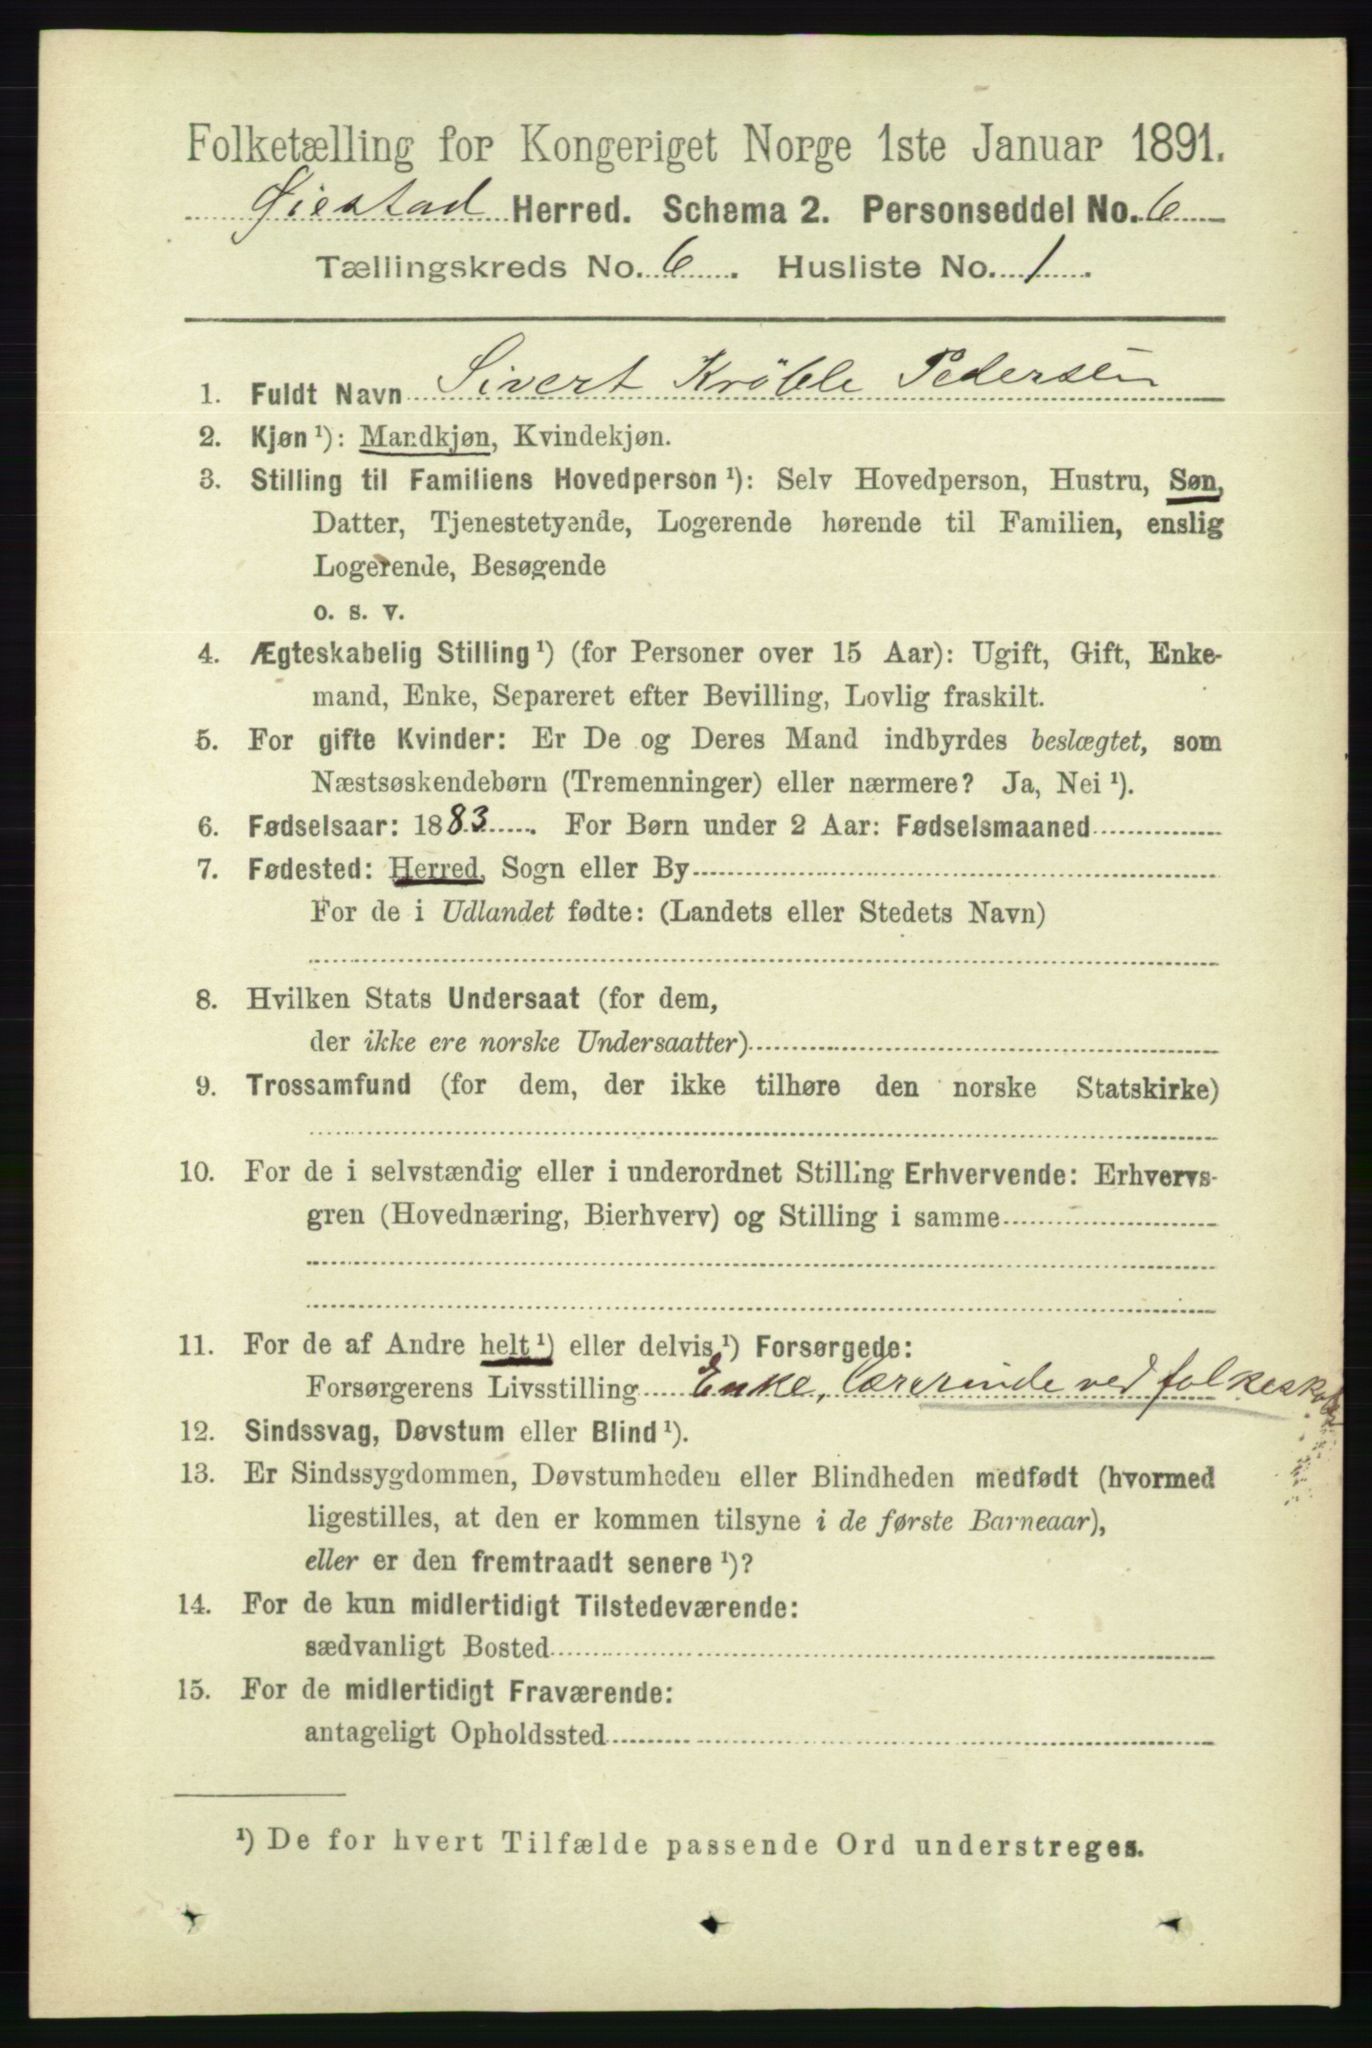 Folketælling for Kongeriget Norge 1ste Januar 1891.
Øiestad Herred. Schema 2. Personseddel No. 6
Tællingskreds No. 6. Husliste No. 1.
1. Fuldt Navn Sivert Kröble Pedersen
2. Kjøn¹): Mandkjøn, Kvindekjøn.
3. Stilling til Familiens Hovedperson¹): Selv Hovedperson, Hustru, Søn,
Datter, Tjenestetyende, Logerende hørende til Familien, enslig
Logerende, Besøgende
o. s. v.
4. Ægteskabelig Stilling¹) (for Personer over 15 Aar): Ugift, Gift, Enke-
mand, Enke, Separeret efter Bevilling, Lovlig fraskilt.
5. For gifte Kvinder: Er De og Deres Mand indbyrdes beslægtet, som
Næstsøskendebørn (Tremenninger) eller nærmere? Ja, Nei¹).
6. Fødselsaar: 1883. For Børn under 2 Aar: Fødselsmaaned
7. Fødested: Herred, Sogn eller By
For de i Udlandet fødte: (Landets eller Stedets Navn)
8. Hvilken Stats Undersaat (for dem,
der ikke ere norske Undersaatter)
9. Trossamfund (for dem, der ikke tilhøre den norske Statskirke)
10. For de i selvstændig eller i underordnet Stilling Erhvervende: Erhvervs-
gren (Hovednæring, Bierhverv) og Stilling i samme
11. For de af Andre helt¹) eller delvis¹) Forsørgede:
Forsørgerens Livsstilling Enke, Lærerinde ved folkeskole
12. Sindssvag, Døvstum eller Blind¹).
13. Er Sindssygdommen, Døvstumheden eller Blindheden medfødt (hvormed
ligestilles, at den er kommen tilsyne i de første Barneaar),
eller er den fremtraadt senere¹)?
14. For de kun midlertidigt Tilstedeværende:
sædvanligt Bosted
15. For de midlertidigt Fraværende:
antageligt Opholdssted
¹) De for hvert Tilfælde passende Ord understreges.